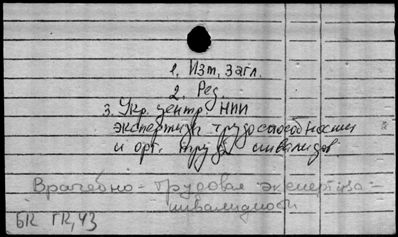 1. Изт, загл.
2. Ред.
3. Укр. центр НИИ
экспертизы трудоспособности
и орг. труда инвалидов.
Врачебно-трудовая экспертиза -
инвалидности
БК ГК,43